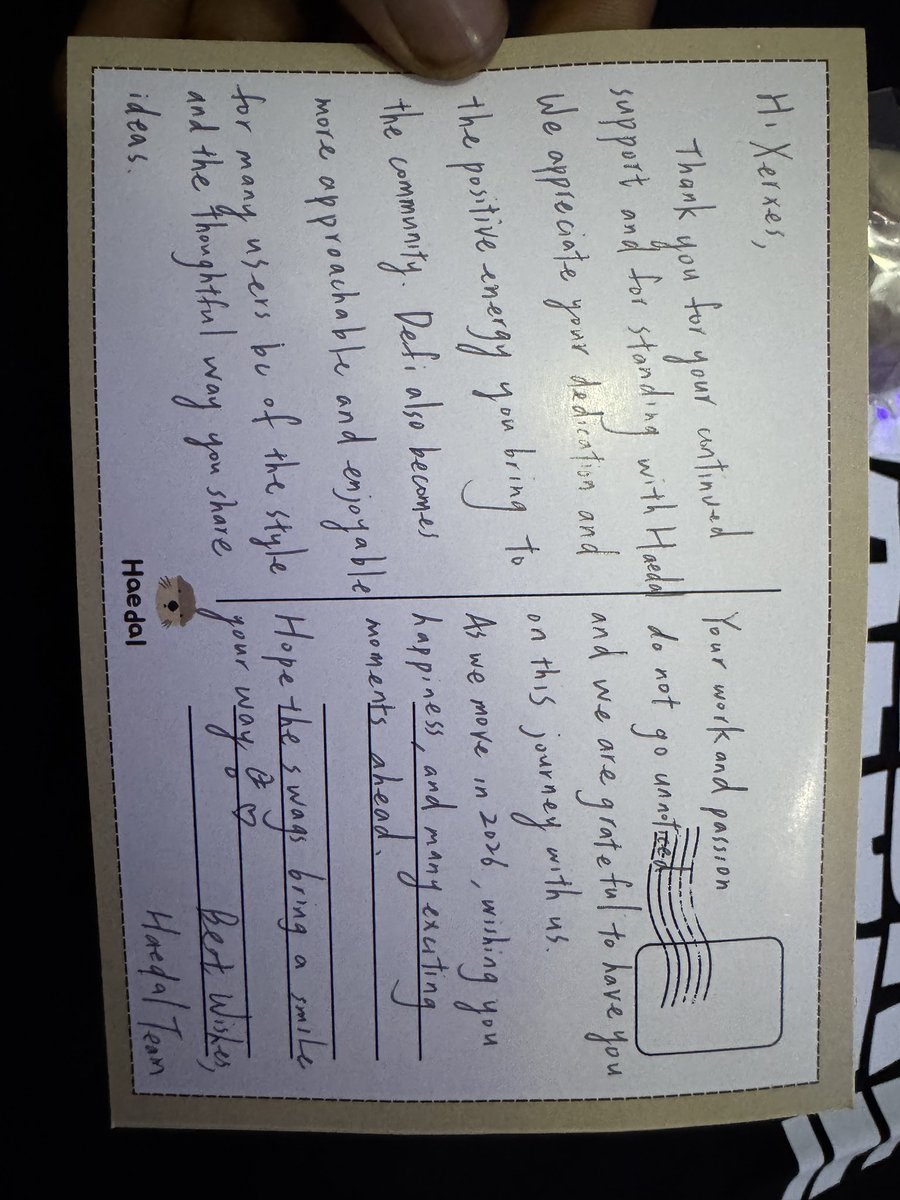 Hi Xerxes,
Thank you for your continued
support and for standing with Haedal
We appreciate your dedication and
the positive energy you bring to
the community. Defi also becomes
more approachable and enjoyable
for many users bc of the style
and the thoughtful way you share
ideas.
Your work and passion
do not go unnoticed
and we are grateful to have you
on this journey with us.
As we move in 2026, wishing you
happiness, and many exciting
moments ahead.
Hope the swags bring a smile
your way
Best Wishes,
Haedal Team
Haedal